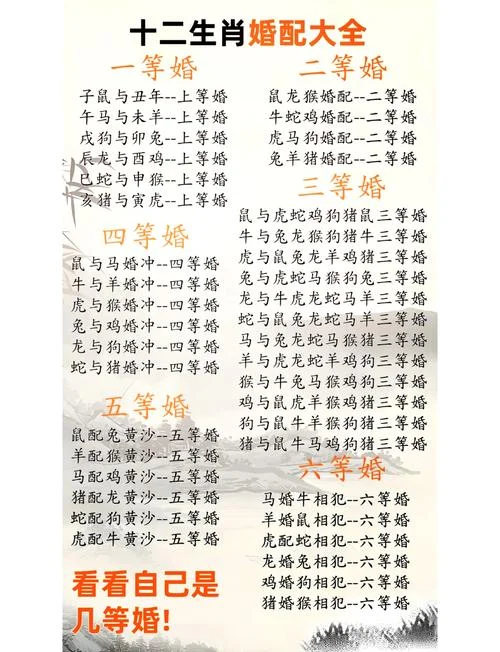 十二生肖婚配大全
一等婚
子鼠与丑年--上等婚
午马与未羊--上等婚
戌狗与卯兔--上等婚
辰龙与酉鸡--上等婚
巳蛇与申猴--上等婚
亥猪与寅虎--上等婚
二等婚
鼠龙猴婚配--二等婚
牛蛇鸡婚配--二等婚
虎马狗婚配--二等婚
兔羊猪婚配--二等婚
三等婚
鼠与虎蛇鸡狗猪鼠三等婚
牛与兔龙猴狗猪牛三等婚
虎与鼠兔龙羊鸡猪三等婚
兔与虎蛇马猴狗兔三等婚
龙与牛虎蛇马羊三等婚
蛇与鼠兔龙蛇马羊三等婚
马与兔龙蛇马猴猪三等婚
羊与虎龙蛇猴鸡狗三等婚
猴与牛兔马猴鸡狗三等婚
鸡与鼠虎羊猴鸡猪三等婚
狗与鼠牛羊猴狗猪三等婚
猪与鼠牛马鸡狗猪三等婚
四等婚
鼠与马婚冲--四等婚
牛与羊婚冲--四等婚
虎与猴婚冲--四等婚
兔与鸡婚冲--四等婚
龙与狗婚冲--四等婚
蛇与猪婚冲--四等婚
五等婚
鼠配兔黄沙--五等婚
羊配猴黄沙--五等婚
马配鸡黄沙--五等婚
猪配龙黄沙--五等婚
蛇配狗黄沙--五等婚
虎配牛黄沙--五等婚
六等婚
马婚牛相犯--六等婚
羊婚鼠相犯--六等婚
虎配蛇相犯--六等婚
龙婚兔相犯--六等婚
鸡婚狗相犯--六等婚
猪婚猴相犯--六等婚
看看自己是
几等婚!